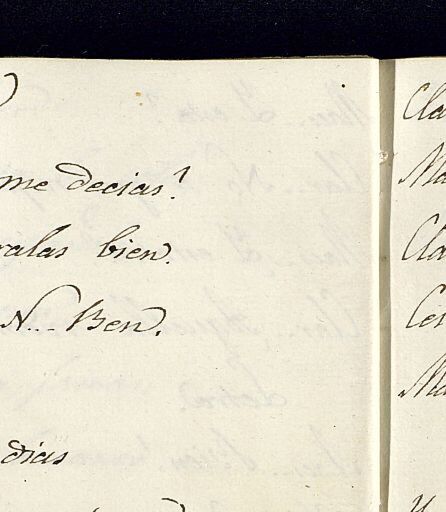 me decias?
ralas bien.
N... Ben.
dias
Cla
Ma
Cla
Cer
Ma